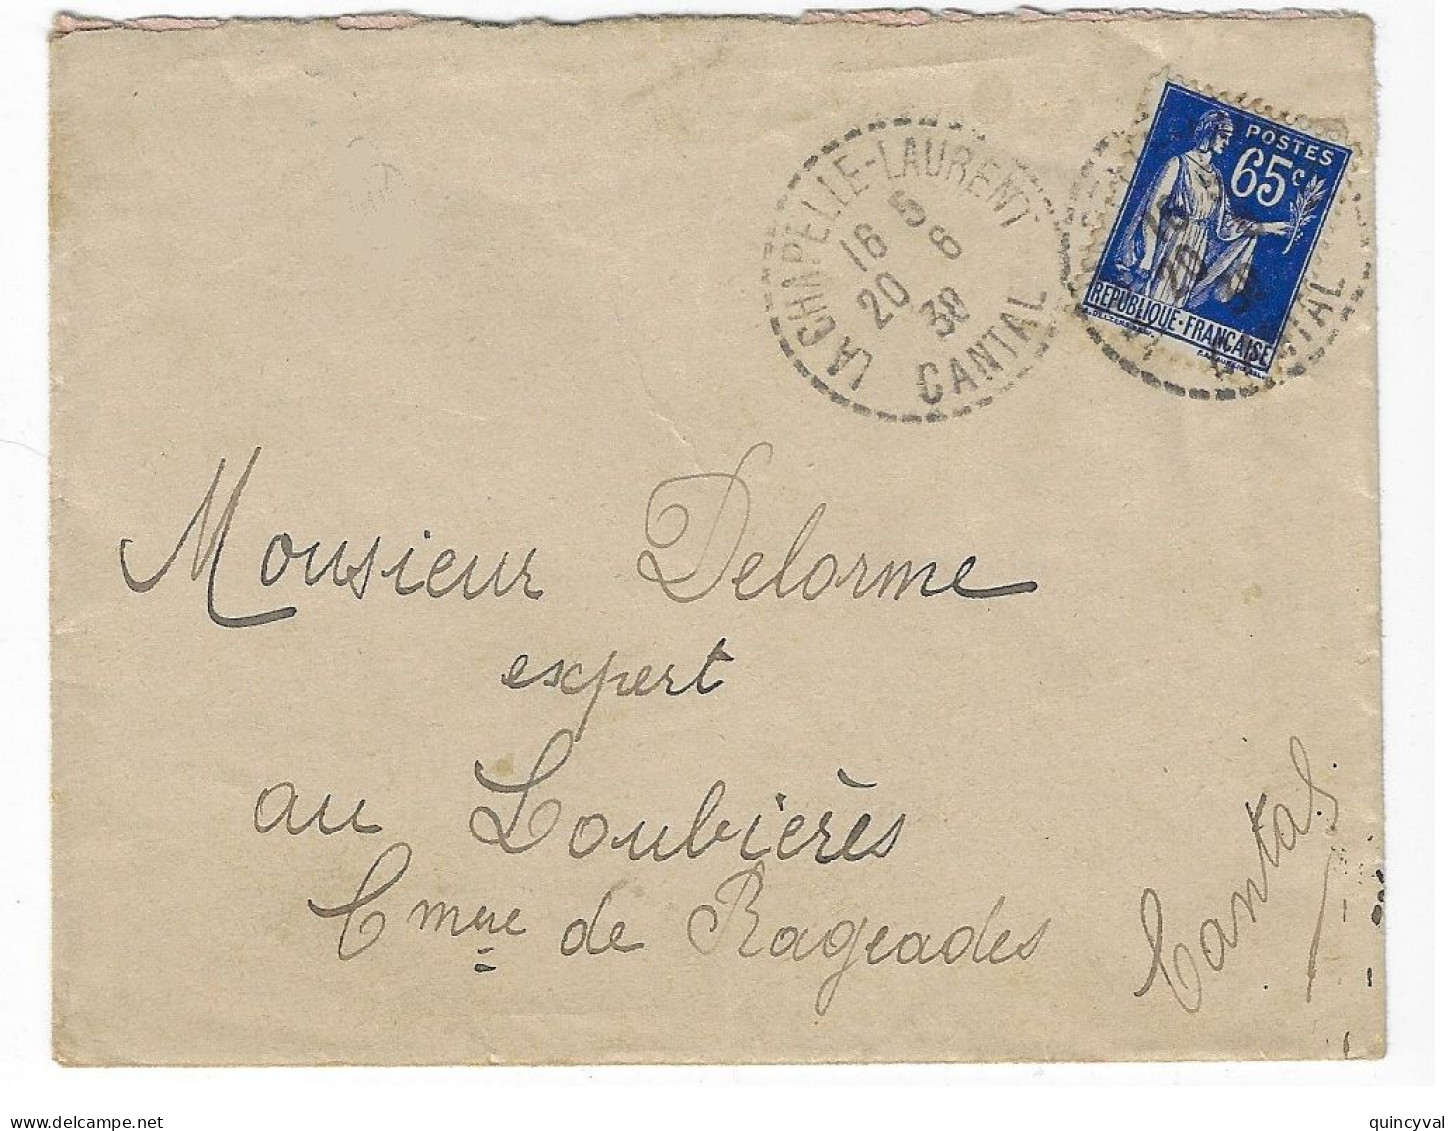 LA CHAPELLE-LAURENT
16 5
20 6
38
CANTAL
POSTES
65c
REPUBLIQUE·FRANÇAISE
16
20
CANTAL
Monsieur Delorme
expert
au Loubières
Cmune de Rageades
Cantal
delcampe.net
quincyval